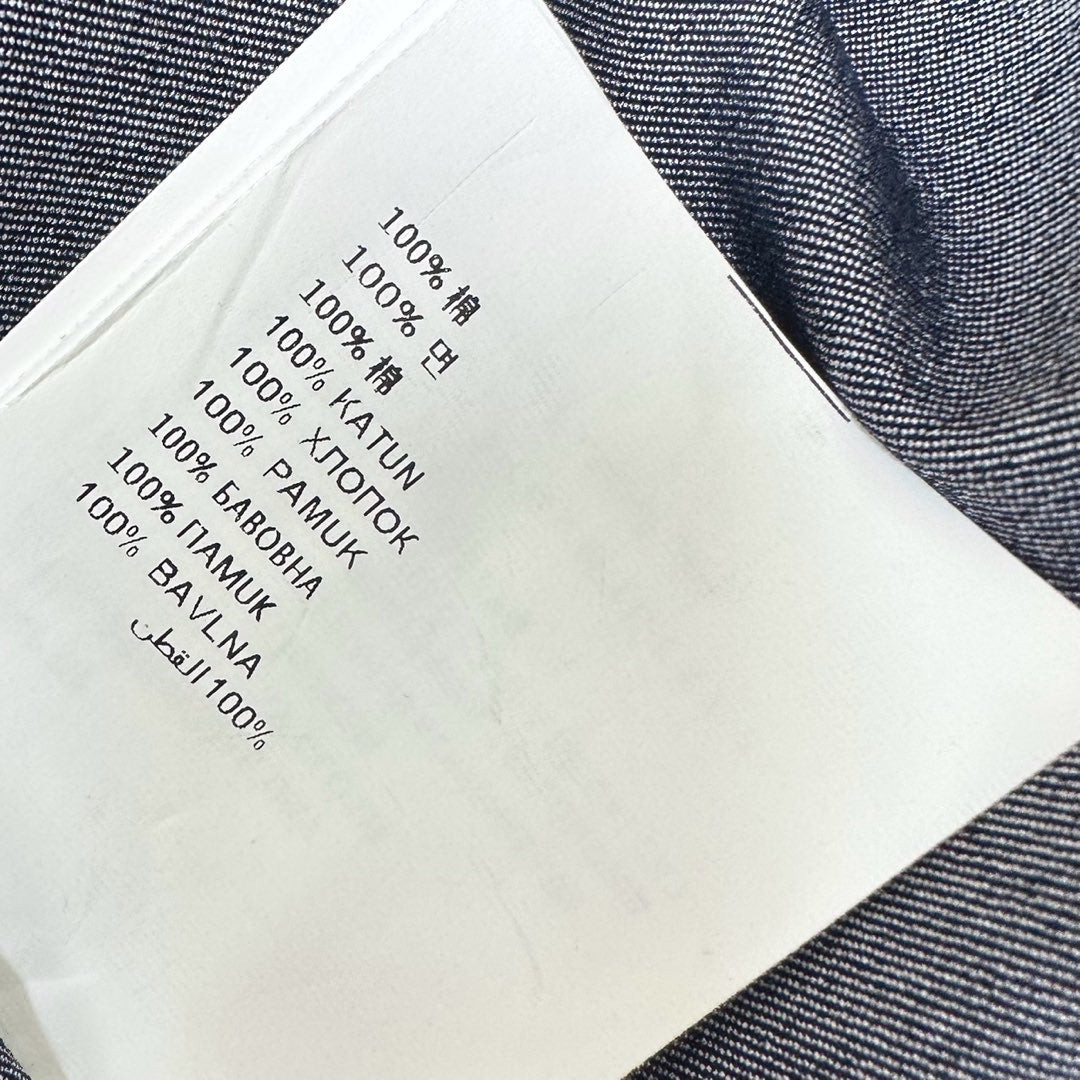 100% 棉
100% 면
100% 棉
100% KATUN
100% ХЛОПОК
100% PAMUK
100% БАВОВНА
100% ПАМUK
100% BAVLNA
100% القطن